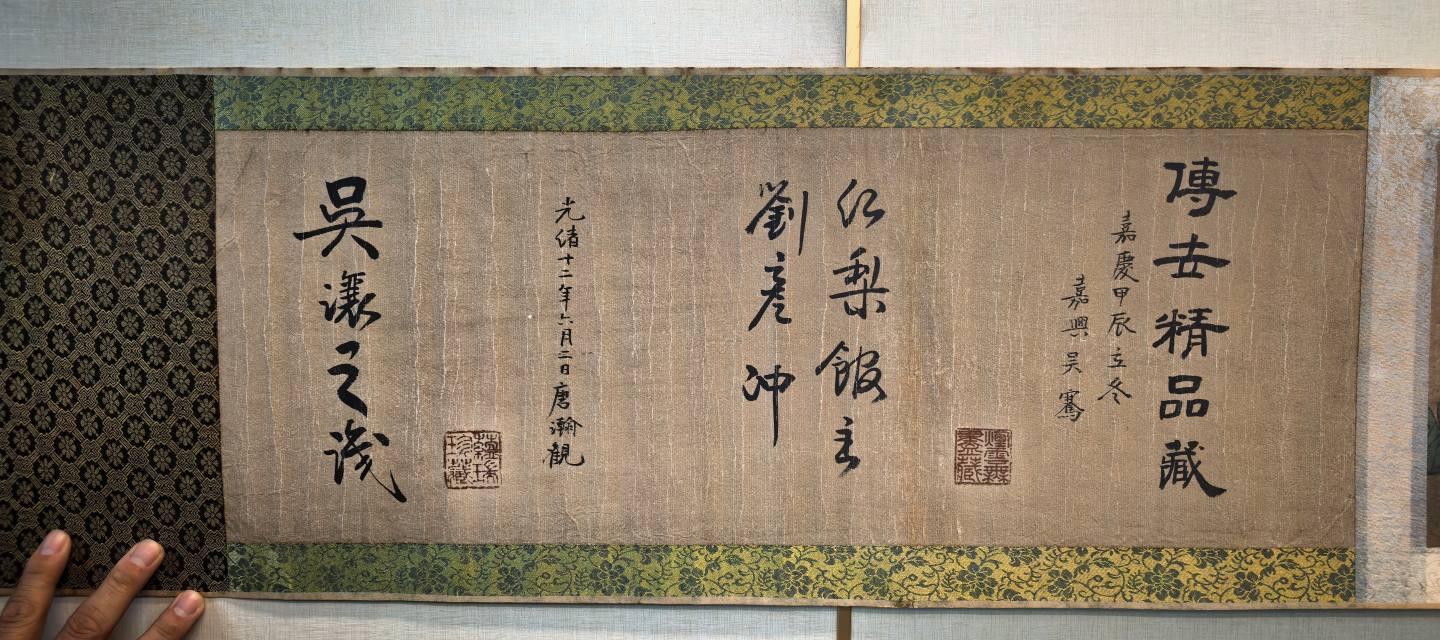 傳世精品藏
嘉慶甲辰立冬
嘉興吳騫
红梨館主
劉彥冲
光緒十二年六月二日唐瀚観
珍藏
吳讓之識